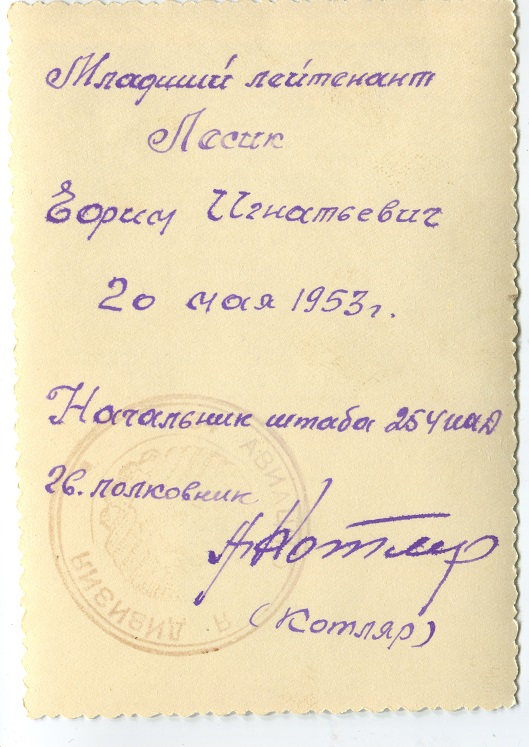 Младший лейтенант
Лесик
Борис Игнатьевич
20 мая 1953 г.
Начальник штаба 254 иаД
Гв. полковник
Котляр
(Котляр)
АВИАЦ
Я ДИВИЗИЯ